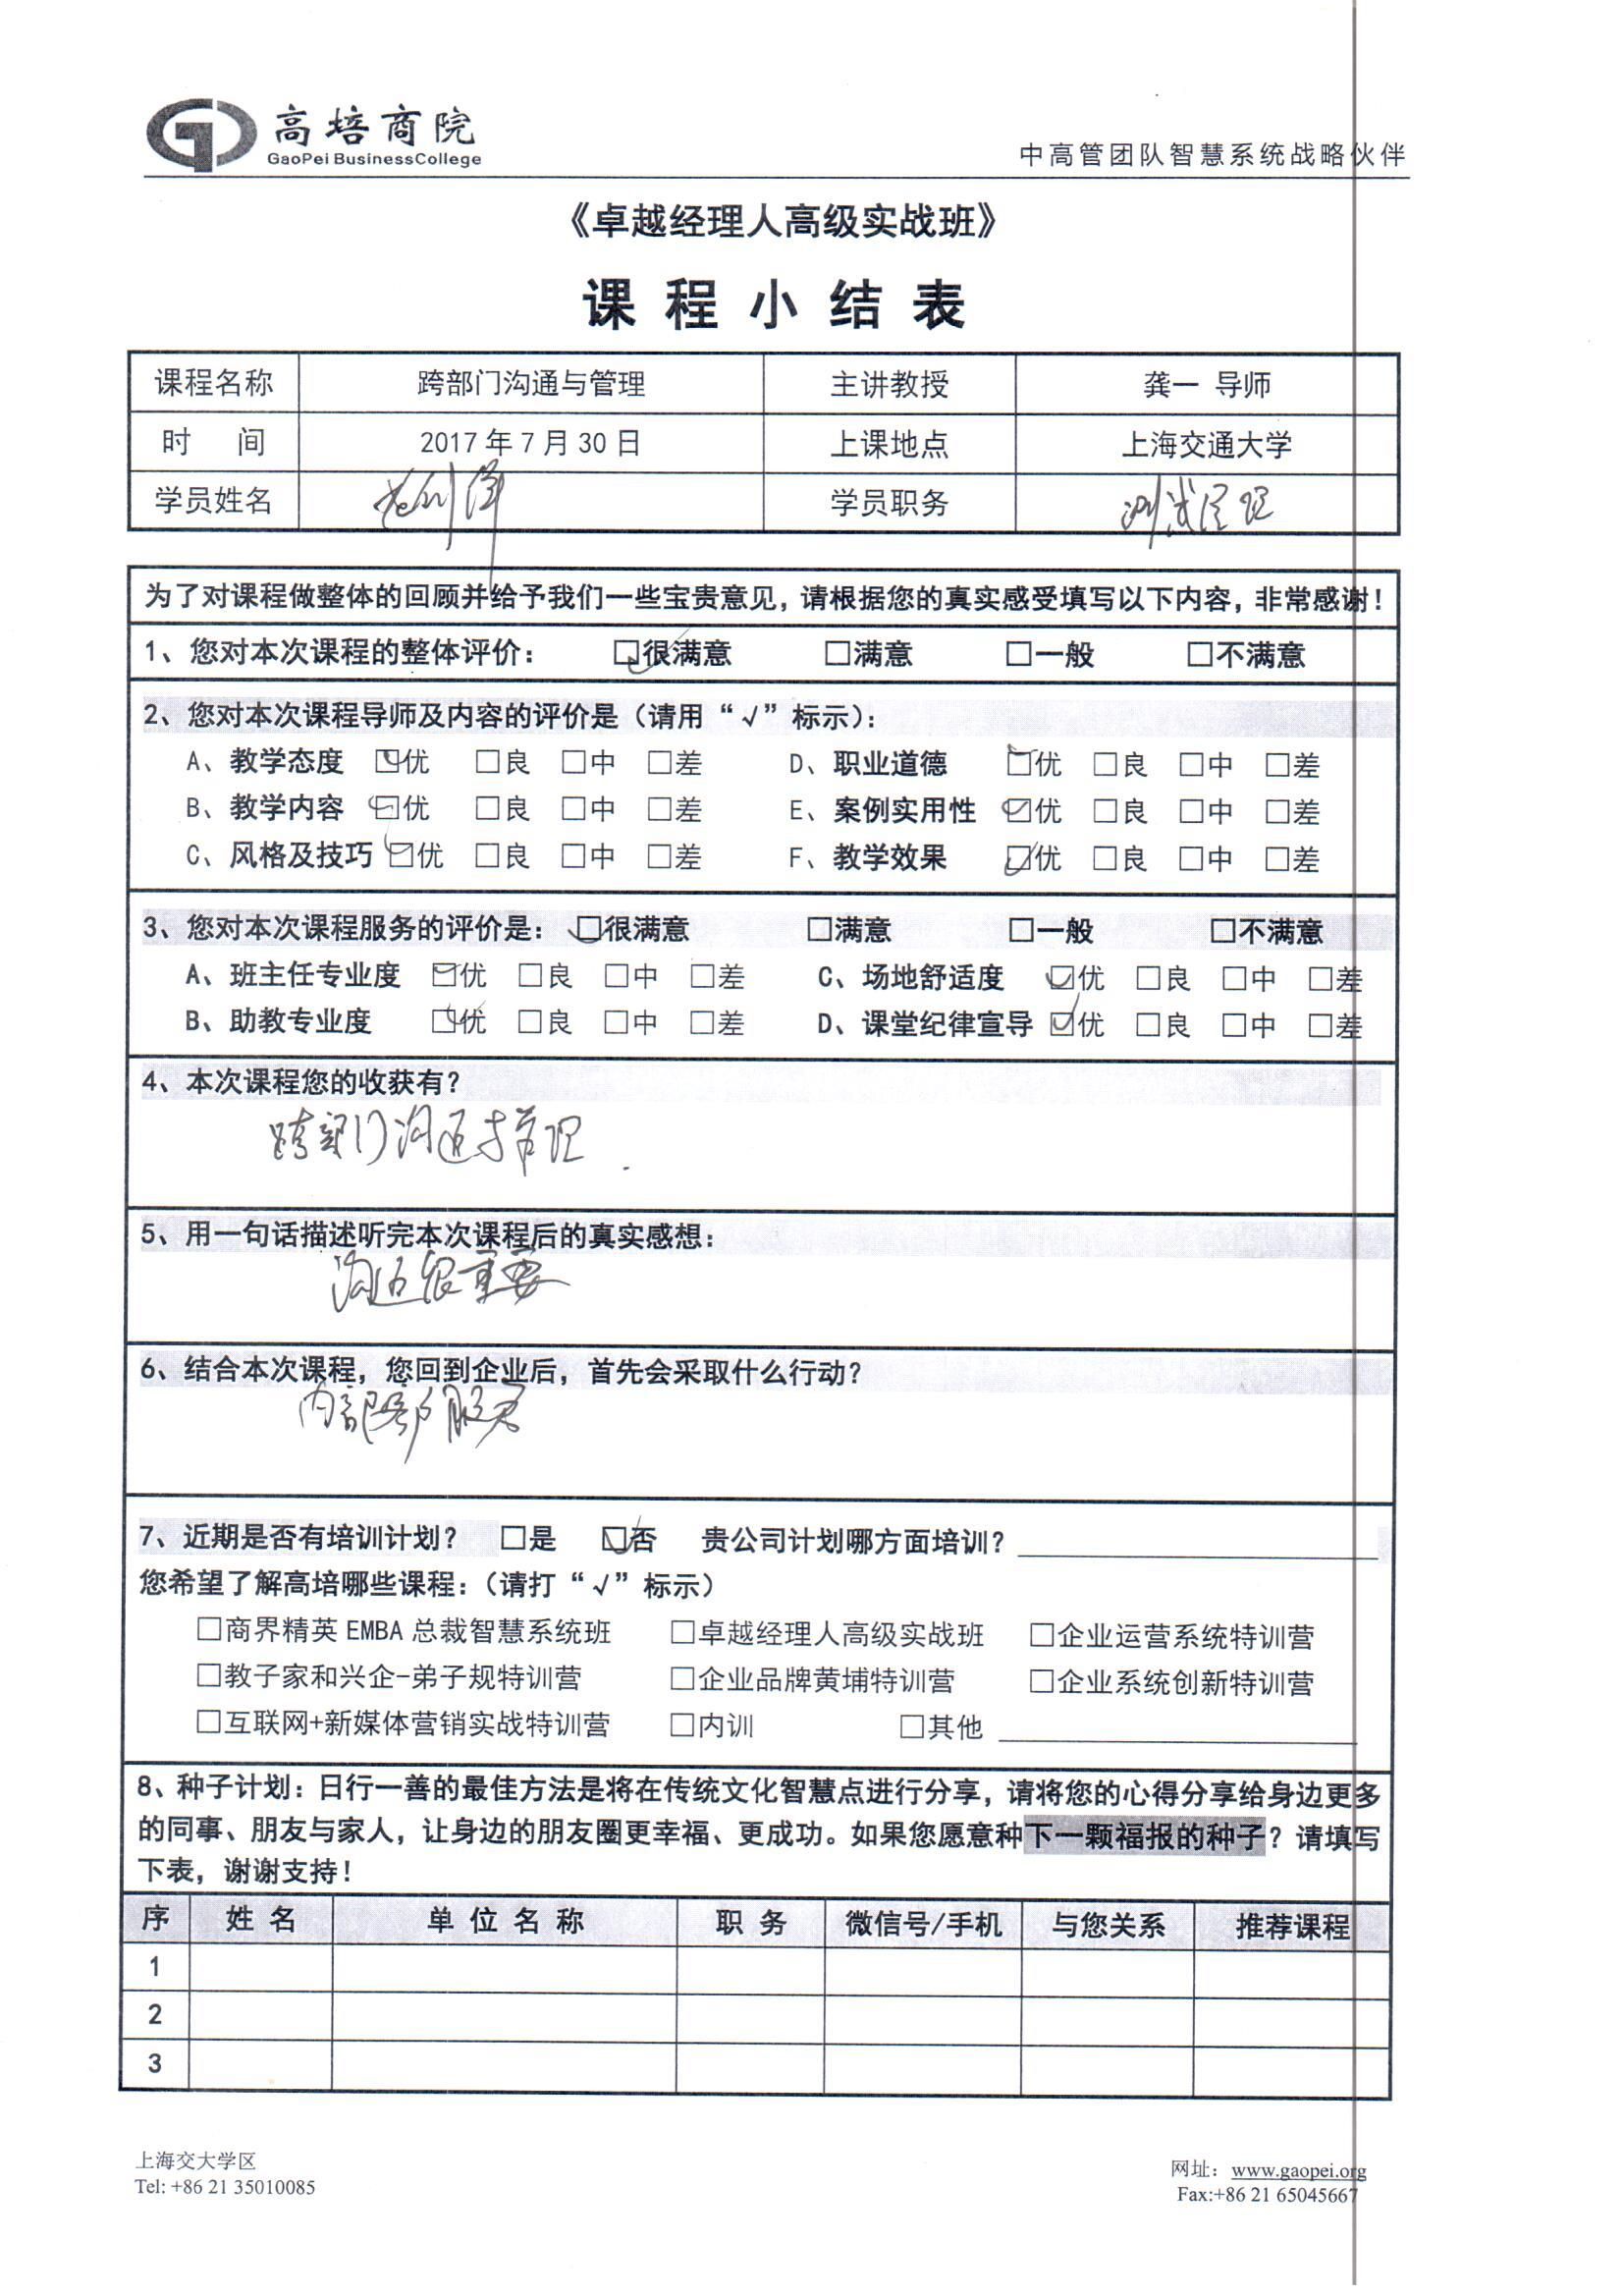 高培商院
GaoPei BusinessCollege
中高管团队智慧系统战略伙伴
《卓越经理人高级实战班》
课程小结表
课程名称 跨部门沟通与管理 主讲教授 龚一 导师
时 间 2017年7月30日 上课地点 上海交通大学
学员姓名 学员职务 测试经理
为了对课程做整体的回顾并给予我们一些宝贵意见，请根据您的真实感受填写以下内容，非常感谢！
1、您对本次课程的整体评价： ☑很满意 □满意 □一般 □不满意
2、您对本次课程导师及内容的评价是（请用“√”标示）：
A、教学态度 ☑优 □良 □中 □差 D、职业道德 ☑优 □良 □中 □差
B、教学内容 ☑优 □良 □中 □差 E、案例实用性 ☑优 □良 □中 □差
C、风格及技巧 ☑优 □良 □中 □差 F、教学效果 ☑优 □良 □中 □差
3、您对本次课程服务的评价是： ☑很满意 □满意 □一般 □不满意
A、班主任专业度 ☑优 □良 □中 □差 C、场地舒适度 ☑优 □良 □中 □差
B、助教专业度 ☑优 □良 □中 □差 D、课堂纪律宣导 ☑优 □良 □中 □差
4、本次课程您的收获有？
跨部门沟通与管理.
5、用一句话描述听完本次课程后的真实感想：
沟通很重要
6、结合本次课程，您回到企业后，首先会采取什么行动？
内部
7、近期是否有培训计划？ □是 ☑否 贵公司计划哪方面培训？
您希望了解高培哪些课程：（请打“√”标示）
□商界精英EMBA总裁智慧系统班 □卓越经理人高级实战班 □企业运营系统特训营
□教子家和兴企-弟子规特训营 □企业品牌黄埔特训营 □企业系统创新特训营
□互联网+新媒体营销实战特训营 □内训 □其他
8、种子计划：日行一善的最佳方法是将在传统文化智慧点进行分享，请将您的心得分享给身边更多
的同事、朋友与家人，让身边的朋友圈更幸福、更成功。如果您愿意种下一颗福报的种子？请填写
下表，谢谢支持！
序 姓名 单位名称 职务 微信号/手机 与您关系 推荐课程
1
2
3
上海交大学区
Tel: +86 21 35010085
网址：www.gaopei.org
Fax:+86 21 65045667